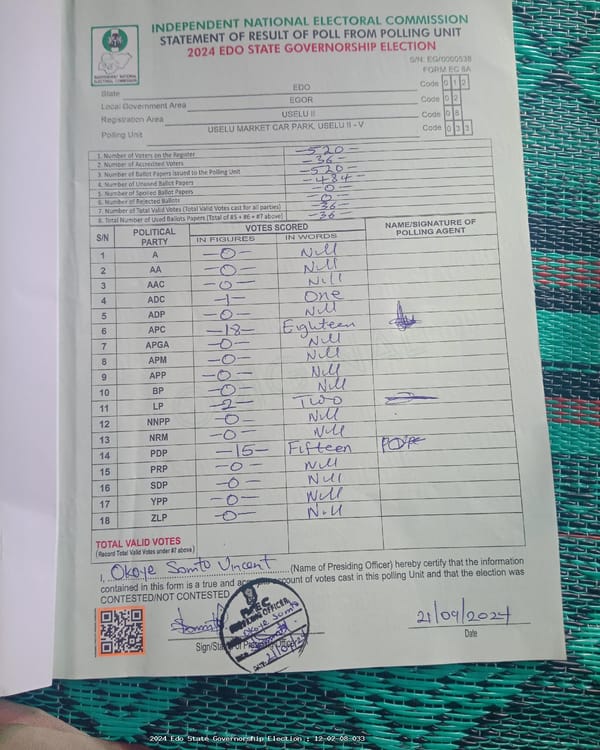 INDEPENDENT NATIONAL ELECTORAL COMMISSION
STATEMENT OF RESULT OF POLL FROM POLLING UNIT
2024 EDO STATE GOVERNORSHIP ELECTION
S/N: EG/0000538
FORM EC 8A
State EDO Code 0 1 2
Local Government Area EGOR Code 0 2
Registration Area USELU II Code 0 8
Polling Unit USELU MARKET CAR PARK, USELU II - V Code 0 3 3
1. Number of Voters on the Register -520-
2. Number of Accredited Voters -36-
3. Number of Ballot Papers Issued to the Polling Unit -520-
4. Number of Unused Ballot Papers -484-
5. Number of Spoiled Ballot Papers -0-
6. Number of Rejected Ballots -0-
7. Number of Total Valid Votes (Total Valid Votes cast for all parties) -36-
8. Total Number of Used Ballots Papers (Total of #5 + #6 + #7 above) -36-
S/N POLITICAL PARTY VOTES SCORED NAME/SIGNATURE OF POLLING AGENT
IN FIGURES IN WORDS
1 A -0- Nill
2 AA -0- Nill
3 AAC -0- Nill
4 ADC -1- One
5 ADP -0- Nill
6 APC -18- Eighteen
7 APGA -0- Nill
8 APM -0- Nill
9 APP -0- Nill
10 BP -0- Nill
11 LP -2- Two
12 NNPP -0- Nill
13 NRM -0- Nill
14 PDP -15- Fifteen
15 PRP -0- Nill
16 SDP -0- Nill
17 YPP -0- Nill
18 ZLP -0- Nill
TOTAL VALID VOTES
(Record Total Valid Votes under #7 above)
I, Okoye Somto Vincent (Name of Presiding Officer) hereby certify that the information
contained in this form is a true and account of votes cast in this polling Unit and that the election was
CONTESTED/NOT CONTESTED
21/09/2024
Date
2024 Edo State Governorship Election : 12-02-08-033